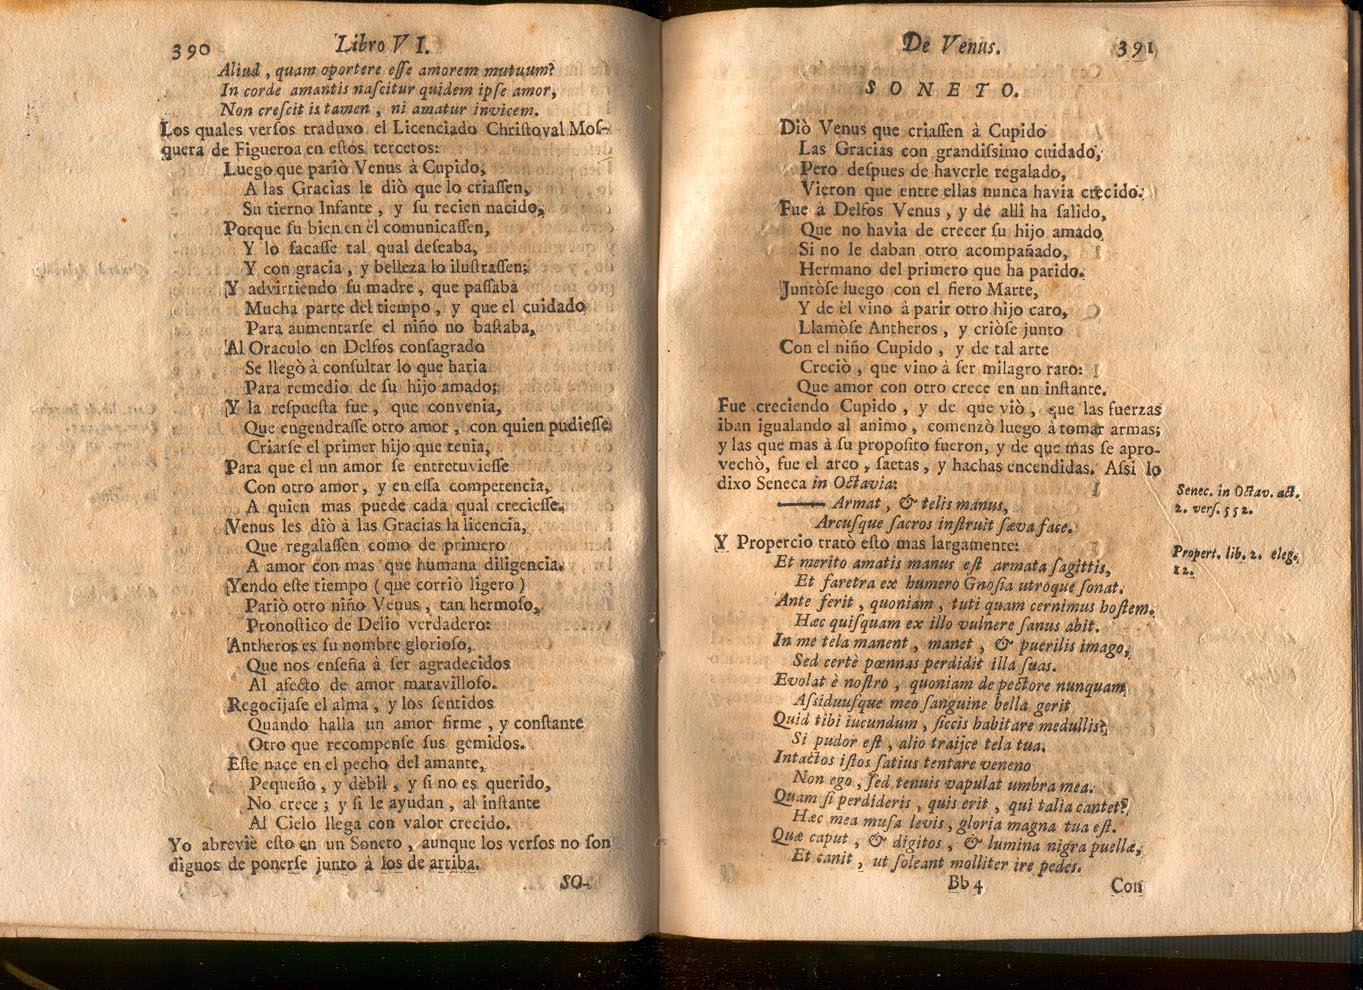 390 Libro VI.
Aliud, quam oportere eſſe amorem mutuum?
In corde amantis naſcitur quidem ipſe amor,
Non creſcit is tamen, ni amatur invicem.
Los quales verſos traduxo el Licenciado Chriſtoval Moſ-
quera de Figueroa en eſtos tercetos:
Luego que pariò Venus à Cupido,
A las Gracias le diò que lo criaſſen,
Su tierno Infante, y ſu recien nacido,
Porque ſu bien en èl comunicaſſen,
Y lo ſacaſſe tal qual deſeaba,
Y con gracia, y belleza lo iluſtraſſen;
Y advirtiendo ſu madre, que paſſaba
Mucha parte del tiempo, y que el cuidado
Para aumentarſe el niño no baſtaba,
Al Oraculo en Delfos conſagrado
Se llegò à conſultar lo que haria
Para remedio de ſu hijo amado;
Y la reſpueſta fue, que convenia,
Que engendraſſe otro amor, con quien pudieſſe
Criarſe el primer hijo que tenia,
Para que el un amor ſe entretuvieſſe
Con otro amor, y en eſſa competencia,
A quien mas puede cada qual crecieſſe.
Venus les diò à las Gracias la licencia,
Que regalaſſen como de primero
A amor con mas que humana diligencia.
Yendo eſte tiempo (que corriò ligero)
Pariò otro niño Venus, tan hermoſo,
Pronoſtico de Delio verdadero:
Antheros es ſu nombre glorioſo,
Que nos enſeña à ſer agradecidos
Al afecto de amor maravilloſo.
Regocijaſe el alma, y los ſentidos
Quando halla un amor firme, y conſtante
Otro que recompenſe ſus gemidos.
Eſte nace en el pecho del amante,
Pequeño, y dèbil, y ſi no es querido,
No crece; y ſi le ayudan, al inſtante
Al Cielo llega con valor crecido.
Yo abreviè eſto en un Soneto, aunque los verſos no ſon
dignos de ponerſe junto à los de arriba.
SO-
De Venus. 391
SONETO.
Diò Venus que criaſſen à Cupido
Las Gracias con grandiſsimo cuidado,
Pero deſpues de haverle regalado,
Vieron que entre ellas nunca havia crecido:
Fue à Delfos Venus, y de alli ha ſalido,
Que no havia de crecer ſu hijo amado,
Si no le daban otro acompañado,
Hermano del primero que ha parido.
Juntòſe luego con el fiero Marte,
Y de èl vino à parir otro hijo caro,
Llamòſe Antheros, y criòſe junto
Con el niño Cupido, y de tal arte
Creciò, que vino à ſer milagro raro:
Que amor con otro crece en un inſtante.
Fue creciendo Cupido, y de que viò, que las fuerzas
iban igualando al animo, comenzò luego à tomar armas;
y las que mas à ſu propoſito fueron, y de que mas ſe apro-
vechò, fue el arco, ſaetas, y hachas encendidas. Aſsi lo
dixo Seneca in Octavia:
Senec. in Octav. act.
2. verſ. 552.
Armat, & telis manus,
Arcuſque ſacros inſtruit ſæva face.
Y Propercio tratò eſto mas largamente:
Propert. lib. 2. eleg.
12.
Et merito amatis manus eſt armata ſagittis,
Et faretra ex humero Gnoſia utroque ſonat.
Ante ferit, quoniam, tuti quam cernimus hoſtem,
Hæc quiſquam ex illo vulnere ſanus abit.
In me tela manent, manet, & puerilis imago,
Sed certè pœnnas perdidit illa ſuas.
Evolat è noſtro, quoniam de pectore nunquam,
Aſsiduuſque meo ſanguine bella gerit
Quid tibi iucundum, ſiccis habitare medullis?
Si pudor eſt, alio traijce tela tua.
Intactos iſtos ſatius tentare veneno
Non ego, ſed tenuis vapulat umbra mea.
Quam ſi perdideris, quis erit, qui talia cantet?
Hæc mea muſa levis, gloria magna tua eſt.
Quæ caput, & digitos, & lumina nigra puellæ,
Et canit, ut ſoleant molliter ire pedes.
Bb4 Con